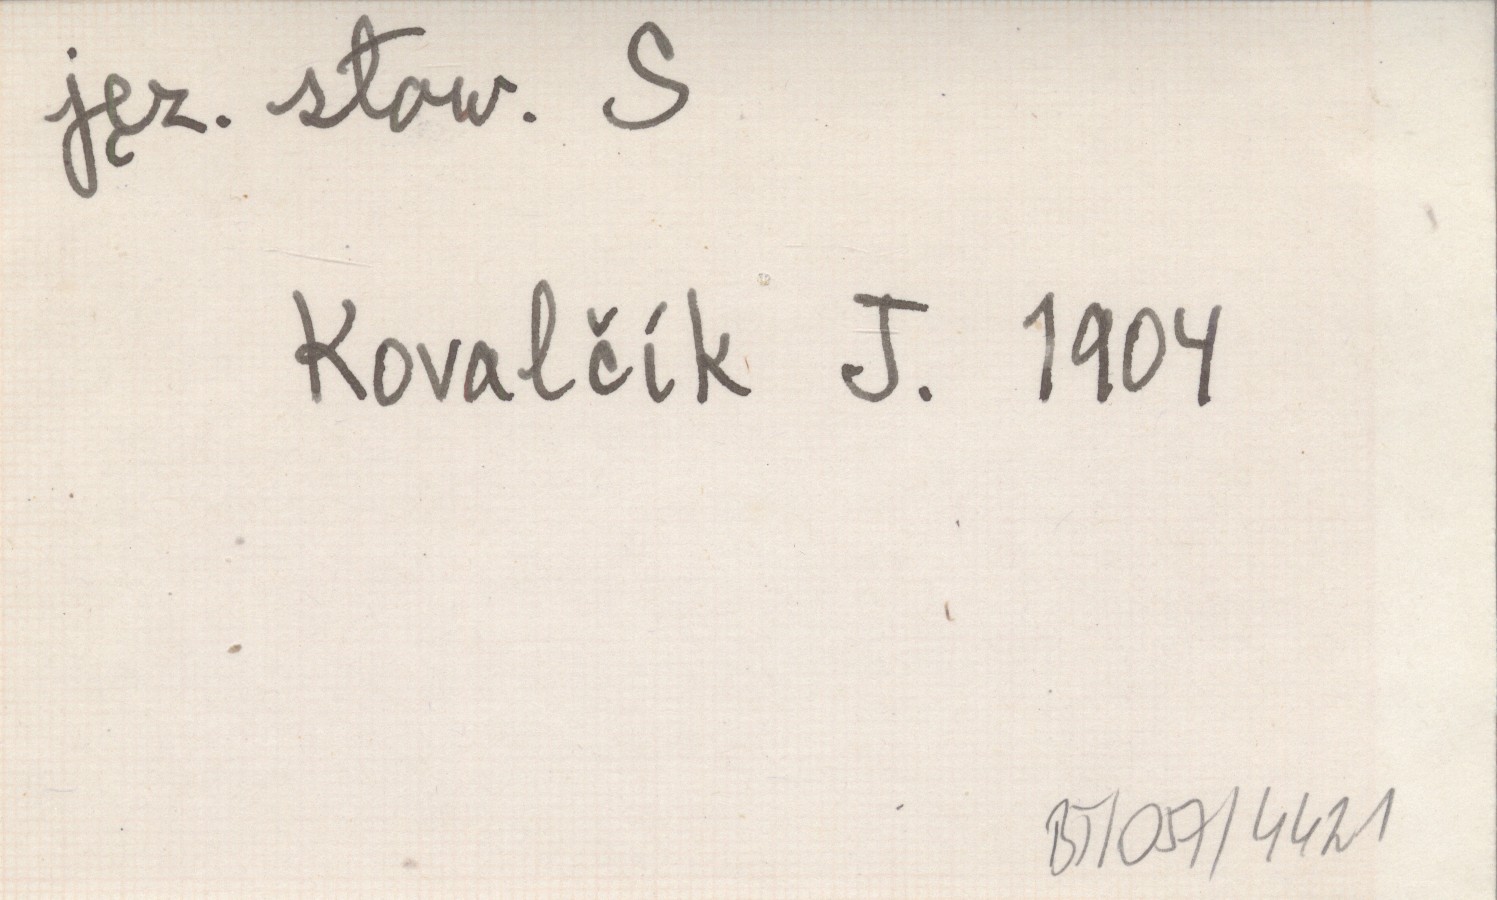 jęz. słow. S
Kovalčík J. 1904
BT/057/4421